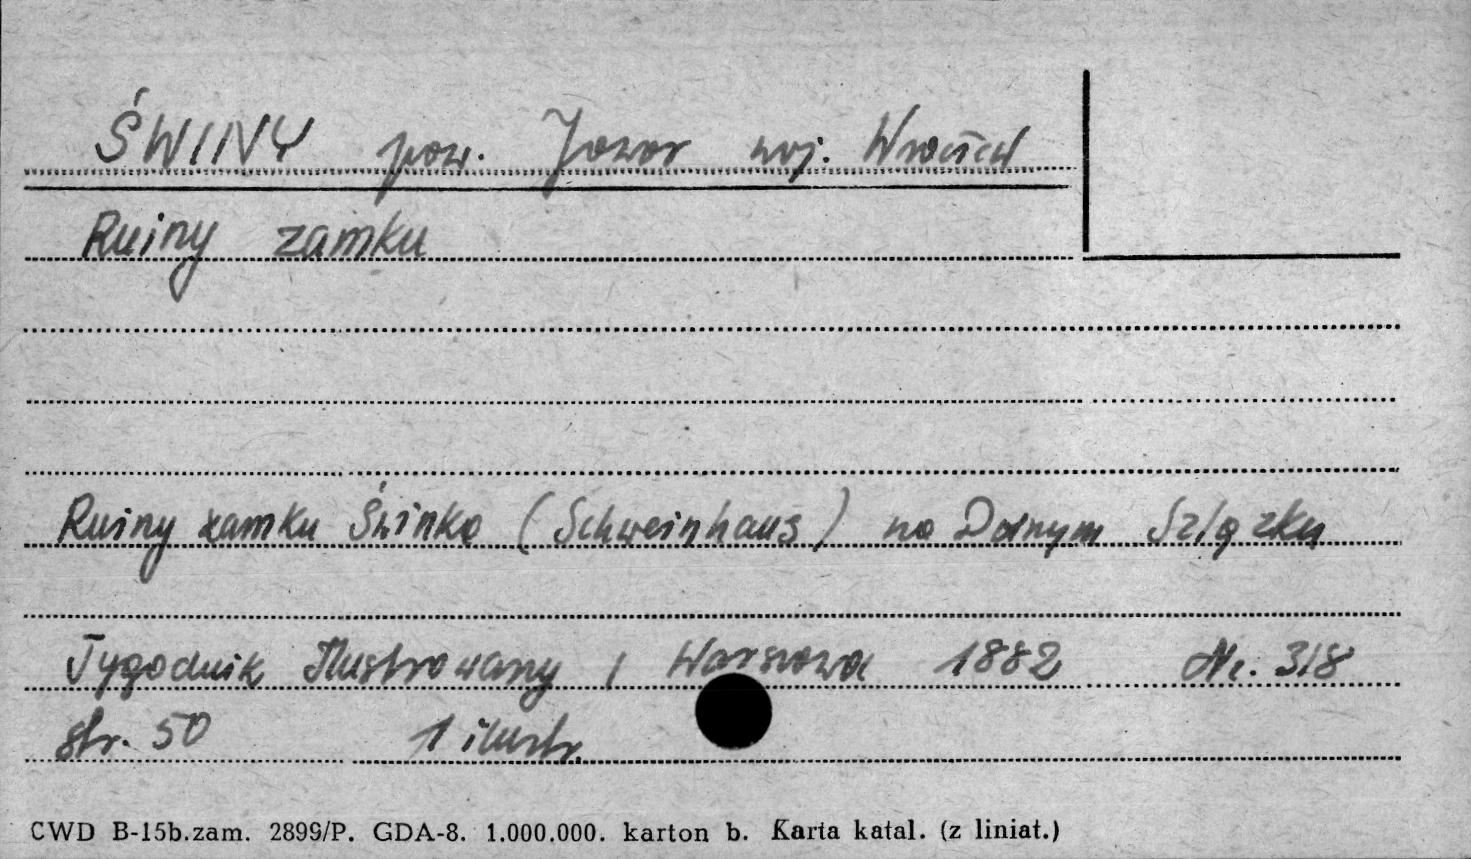 ŚWINY pow. Jawor woj. Wrocław
Ruiny zamku
Ruiny zamku Świnka (Schweinhaus) na Dolnym Szlązku
Tygodnik Illustrowany, Warszawa 1882 Nr. 318
str. 50 1 ilustr.
CWD B-15b.zam. 2899/P. GDA-8. 1.000.000. karton b. Karta katal. (z liniat.)